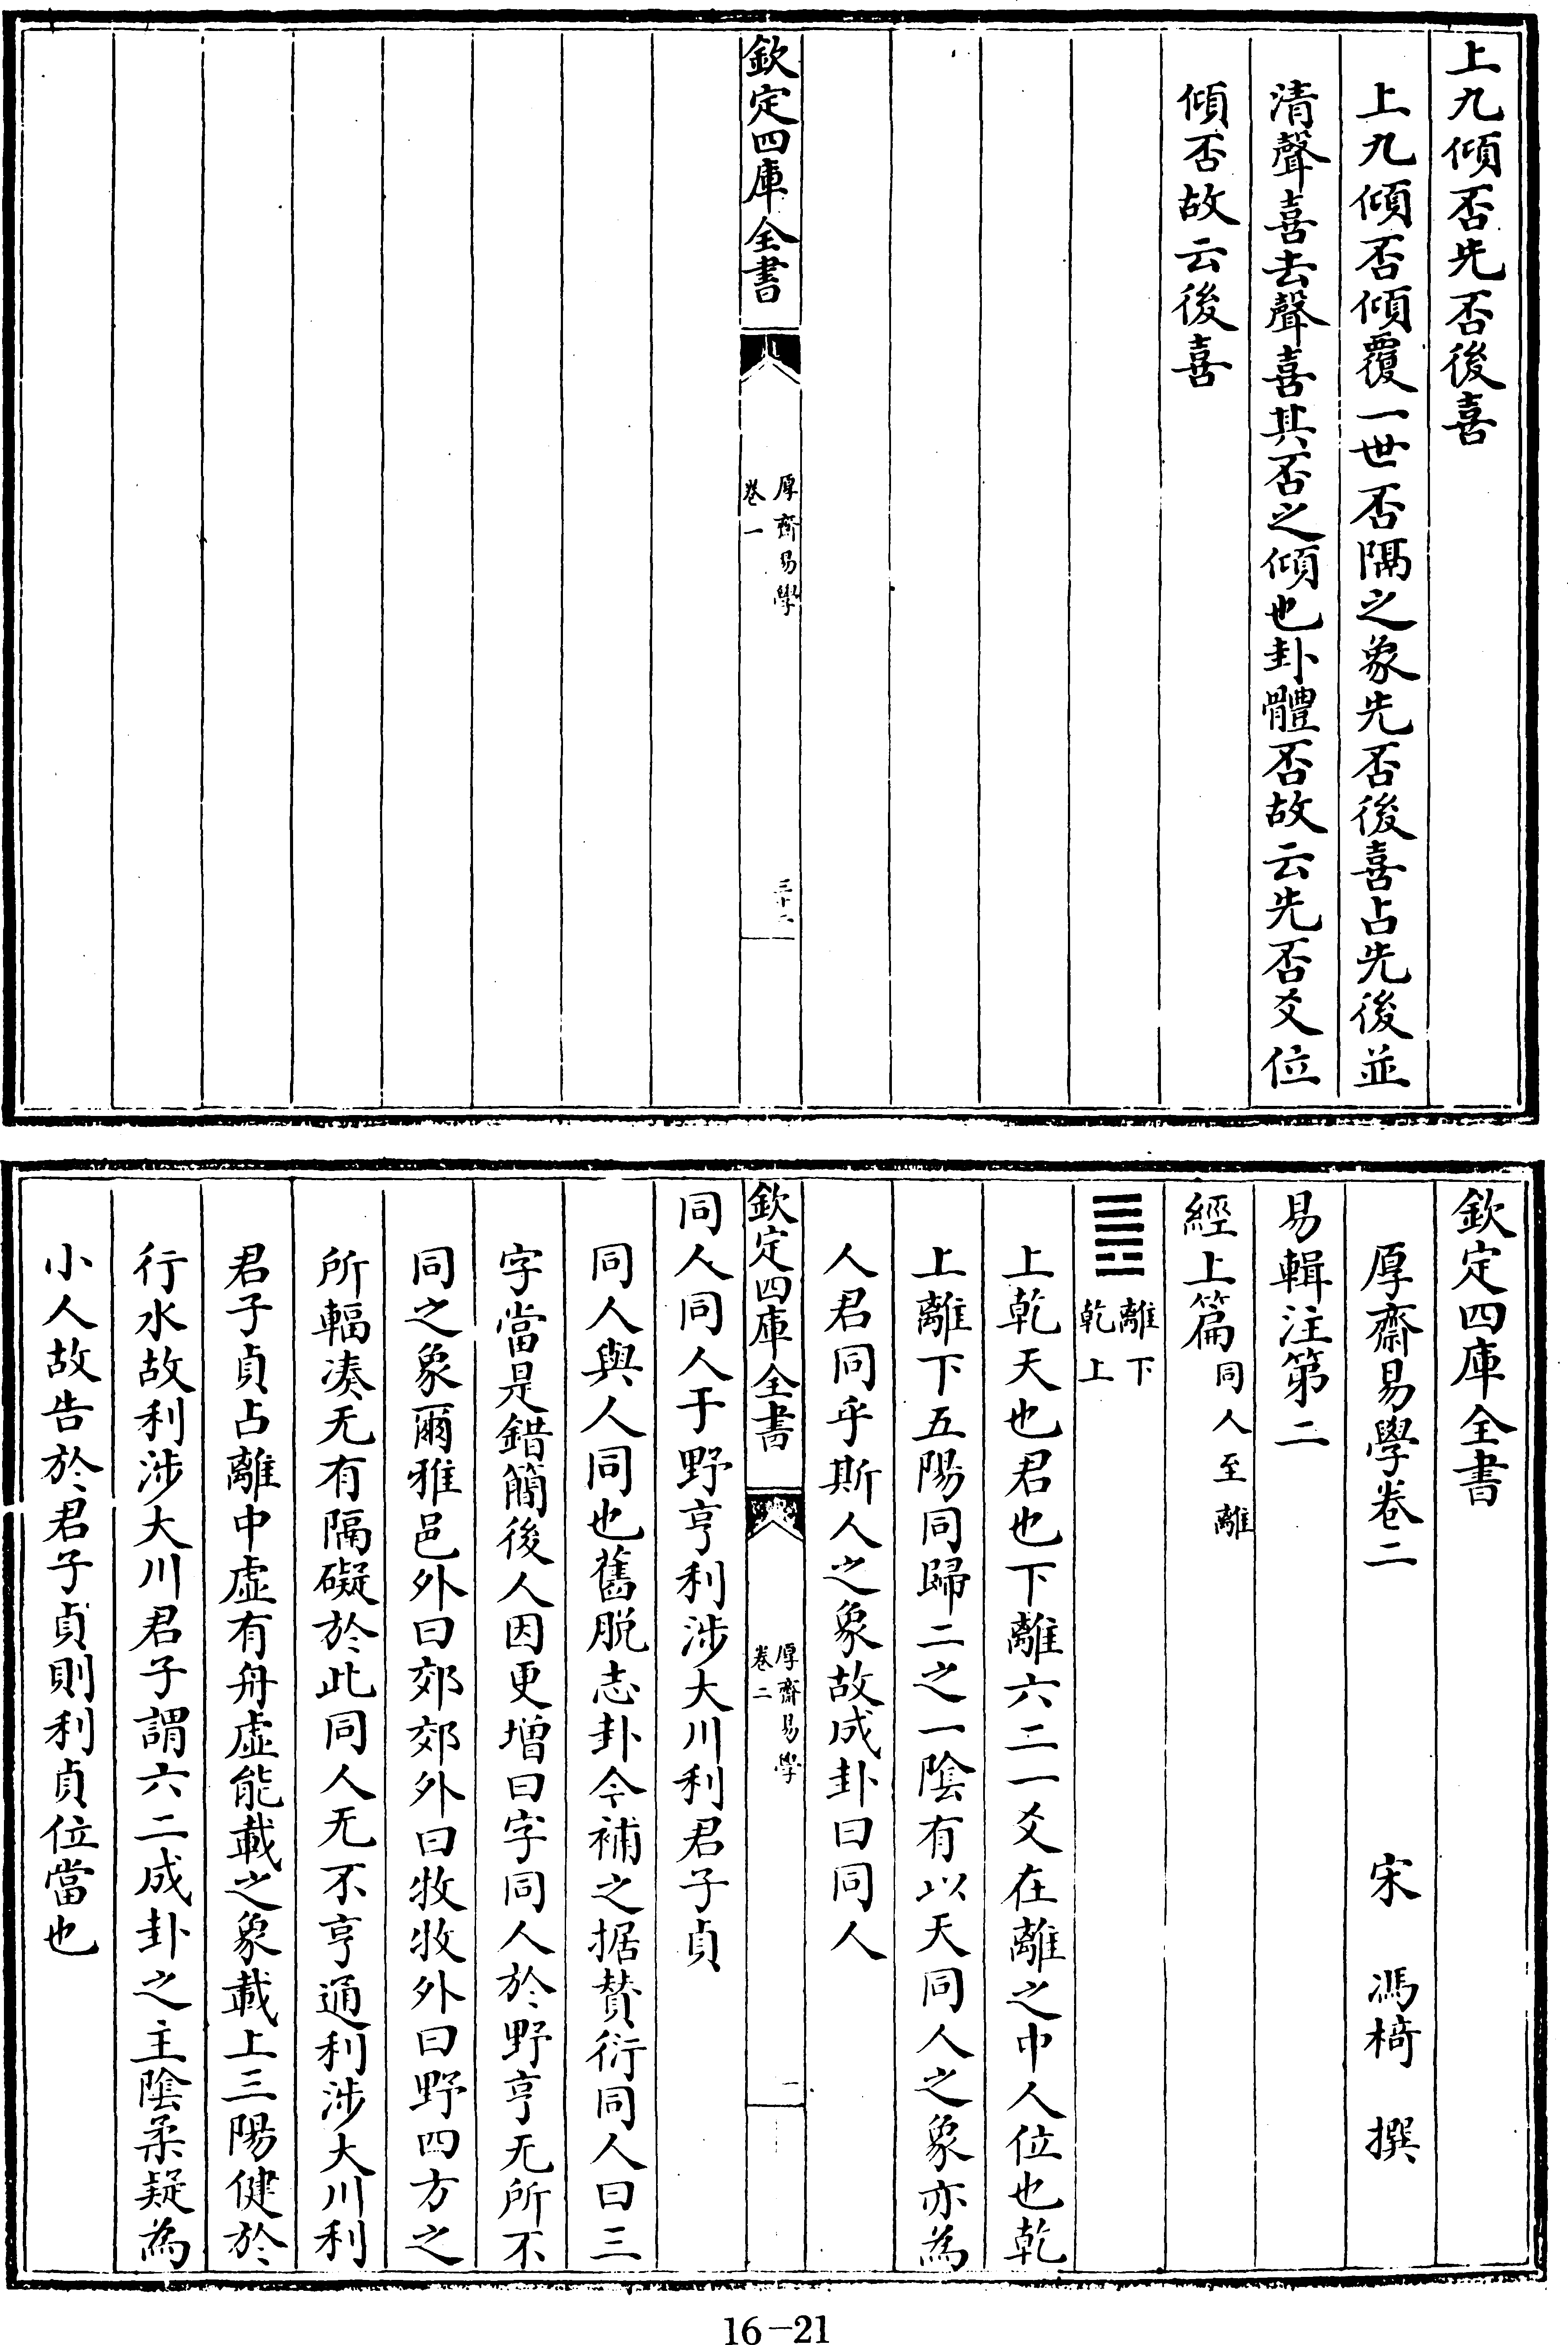 上九傾否先否後喜
上九傾否傾覆一世否隔之象先否後喜占先後並
清聲喜去聲喜其否之傾也卦體否故云先否爻位
傾否故云後喜
欽定四庫全書
厚齋易學
卷一
三十二
欽定四庫全書
厚齋易學卷二
宋 馮椅 撰
易輯注第二
經上篇同人至離
離下
乾上
上乾天也君也下離六二一爻在離之中人位也乾
上離下五陽同歸二之一陰有以天同人之象亦為
人君同乎斯人之象故成卦曰同人
欽定四庫全書
厚齋易學
卷二
一
同人同人于野亨利涉大川利君子貞
同人與人同也舊脱志卦今補之据贊衍同人曰三
字當是錯簡後人因更增曰字同人於野亨无所不
同之象爾雅邑外曰郊郊外曰牧牧外曰野四方之
所輻湊无有隔礙於此同人无不亨通利涉大川利
君子貞占離中虛有舟虛能載之象載上三陽健於
行水故利涉大川君子謂六二成卦之主陰柔疑為
小人故告於君子貞則利貞位當也
16-21